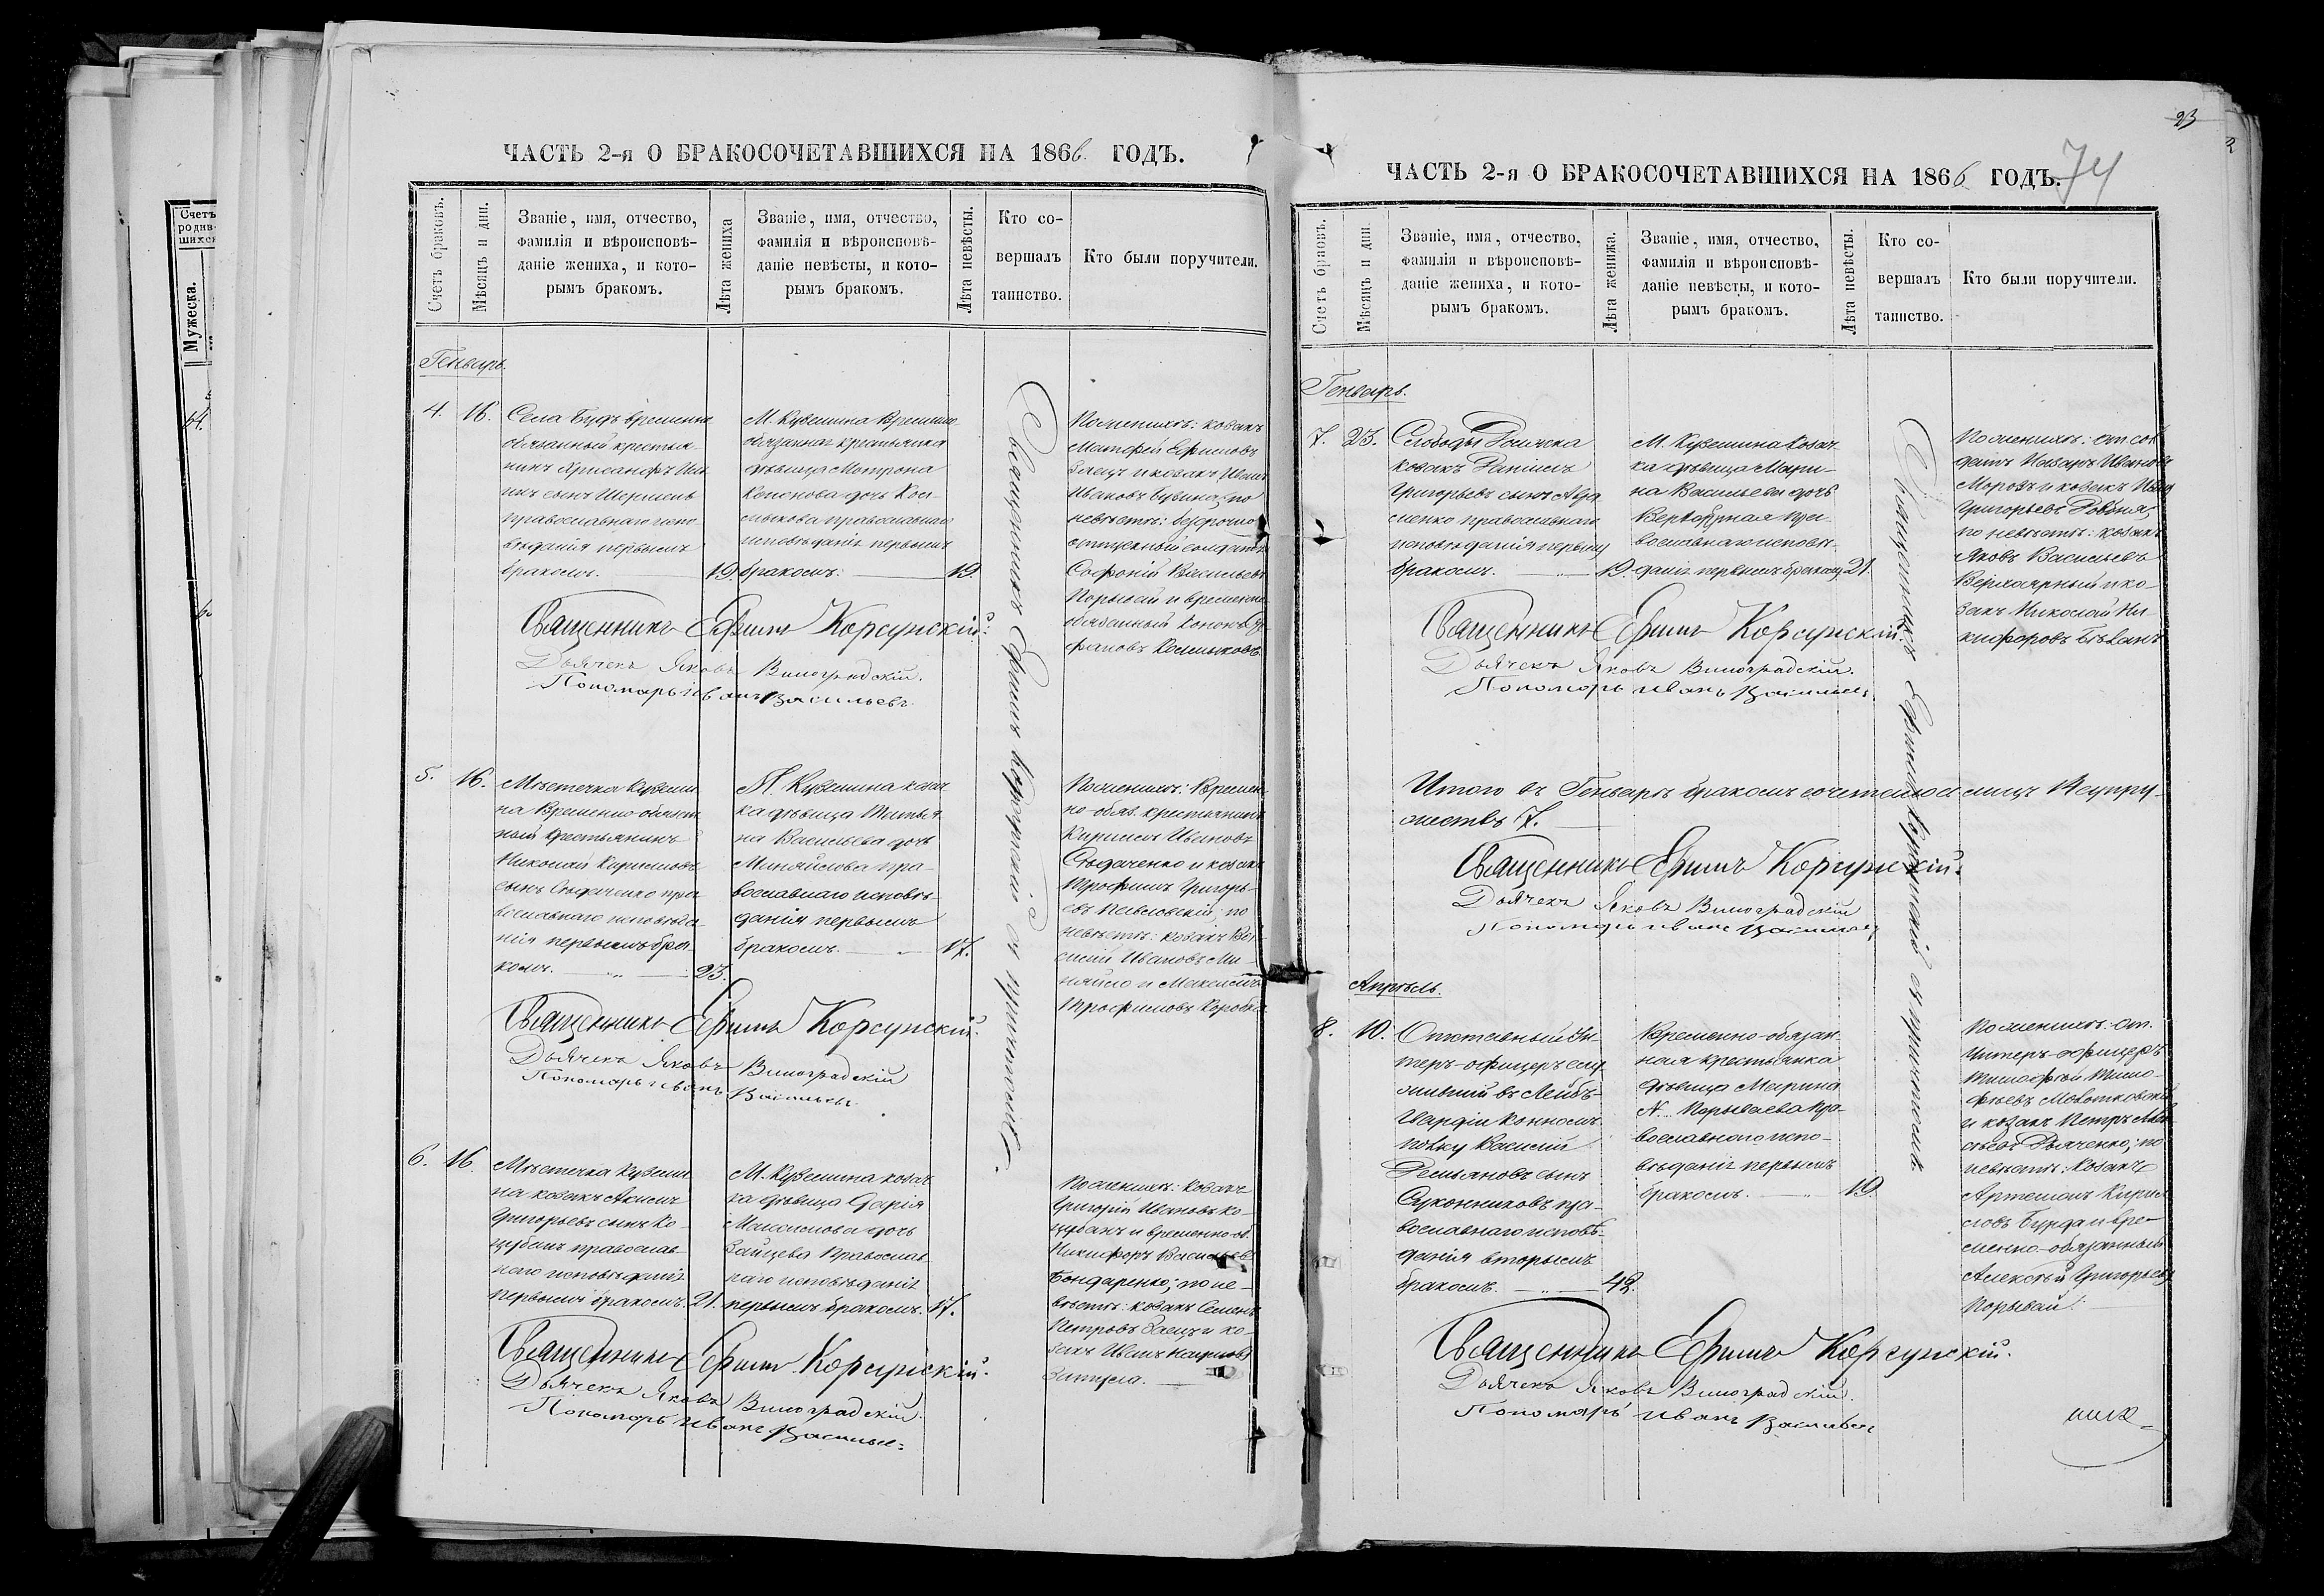 Счетъ
родив-
шихся
Мужеска.
ЧАСТЬ 2-я О БРАКОСОЧЕТАВШИХСЯ НА 1866 ГОДЪ.
Счетъ браковъ.
Мѣсяцъ и дни.
Званіе, имя, отчество,
фамилія и вѣроисповѣ-
даніе жениха, и кото-
рымъ бракомъ.
Лѣта жениха
Званіе, имя, отчество,
фамилія и вѣроисповѣ-
даніе невѣсты, и кото-
рымъ бракомъ.
Лѣта невѣсты.
Кто со-
вершалъ
таинство.
Кто были поручители.
Генварь.
4. 16.
Села Будъ временно
обязанный крестья-
нинъ Хрисанфъ
сынъ
православнаго испо-
вѣданія первымъ
бракомъ. 19.
М. Кувешина временно
обязанная крестьянка
дѣвица Мотрона
Кононова дочь
православнаго
исповѣданія первымъ
бракомъ. 19.
По женихѣ: козакъ
Матфей Ефимовъ
Заецъ и козакъ Иванъ
Ивановъ по
невѣстѣ: безсрочно
отпускной солдатъ
Софроній Васильевъ
Порывай и временно
обязанный Кононъ
Священникъ Ефимъ Корсунскій.
Дьячекъ Яковъ Виноградскій.
Пономарь Иванъ Васильевъ.
5. 16.
Мѣстечка Кувеши-
на временно-обязан-
ный крестьянинъ
Николай Кириловъ
сынъ пра-
вославнаго исповѣда-
нія первымъ бра-
комъ. 23.
М. Кувешина козач-
ка дѣвица Татья-
на Васильева дочь
Миняйлова пра-
вославнаго исповѣ-
данія первымъ
бракомъ. 17.
По женихѣ: времен-
но-обяз. крестьянинъ
Кирилъ Ивановъ
и козакъ
Трофимъ Григорь-
евъ по
невѣстѣ: козакъ Ва-
силій Ивановъ Ми-
няйло и Максимъ
Трофимовъ Коробка
Священникъ Ефимъ Корсунскій.
Дьячекъ Яковъ Виноградскій
Пономарь Иванъ Васильевъ
6. 16.
Мѣстечка Кувеши-
на козакъ Акимъ
Григорьевъ сынъ Ко-
цубанъ православ-
наго исповѣданія
первымъ бракомъ. 21.
М. Кувешина козач-
ка дѣвица Дарія
Максимова дочь
Зайцева православ-
наго исповѣданія
первымъ бракомъ. 17.
По женихѣ: козакъ
Григорій Ивановъ Ко-
цубанъ и временно-об.
Никифоръ Васильевъ
Бондаренко; по не-
вѣстѣ: козакъ Семенъ
Петровъ Заецъ и ко-
закъ Иванъ
Священникъ Ефимъ Корсунскій.
Дьячекъ Яковъ Виноградскій.
Пономарь Иванъ Васильевъ
Священникъ Ефимъ Корсунскій съ причтомъ.
23
74
ЧАСТЬ 2-я О БРАКОСОЧЕТАВШИХСЯ НА 1866 ГОДЪ.
Счетъ браковъ.
Мѣсяцъ и дни.
Званіе, имя, отчество,
фамилія и вѣроисповѣ-
даніе жениха, и кото-
рымъ бракомъ.
Лѣта жениха.
Званіе, имя, отчество,
фамилія и вѣроисповѣ-
даніе невѣсты, и кото-
рымъ бракомъ.
Лѣта невѣсты.
Кто со-
вершалъ
таинство.
Кто были поручители.
Генварь.
7. 23.
Слободы
козакъ Даніилъ
Григорьевъ сынъ
православнаго
исповѣданія первымъ
бракомъ. 19.
М. Кувешина козач-
ка дѣвица Мари-
на Васильева дочь
пра-
вославнаго исповѣ-
данія первымъ бракомъ 21.
По женихѣ: от. сол-
датъ Назаръ Ивановъ
Морозъ и козакъ Иванъ
Григорьевъ
по невѣстѣ: козакъ
Яковъ Васильевъ
и ко-
закъ Николай Ни-
кифоровъ
Священникъ Ефимъ Корсунскій.
Дьячекъ Яковъ Виноградскій.
Пономарь Иванъ Васильевъ
Итого въ Генварѣ бракомъ сочеталось лицъ супру-
жествъ 7.
Священникъ Ефимъ Корсунскій.
Дьячекъ Яковъ Виноградскій
Пономарь Иванъ Васильевъ
Апрѣль.
8. 10.
Отставный ун-
теръ-офицеръ слу-
жившій въ Лейбъ-
Гвардіи Конномъ
полку Василій
Демьяновъ сынъ
Суконниковъ пра-
вославнаго исповѣ-
данія вторымъ
бракомъ. 42.
Временно-обязан-
ная крестьянка
дѣвица Марина
Порываева пра-
вославнаго испо-
вѣданія первымъ
бракомъ. 19
По женихѣ: от.
унтеръ-офицеръ
Тимофей Тимо-
фѣевъ
и козакъ Петръ
Дьяченко; по
невѣстѣ: козакъ
Артемонъ Кирил-
ловъ Бурда и вре-
менно-обязанный
Алексѣй Григорьевъ
Порывай.
Священникъ Ефимъ Корсунскій.
Дьячекъ Яковъ Виноградскій.
Пономарь Иванъ Васильевъ
Священникъ Ефимъ Корсунскій съ причтомъ.